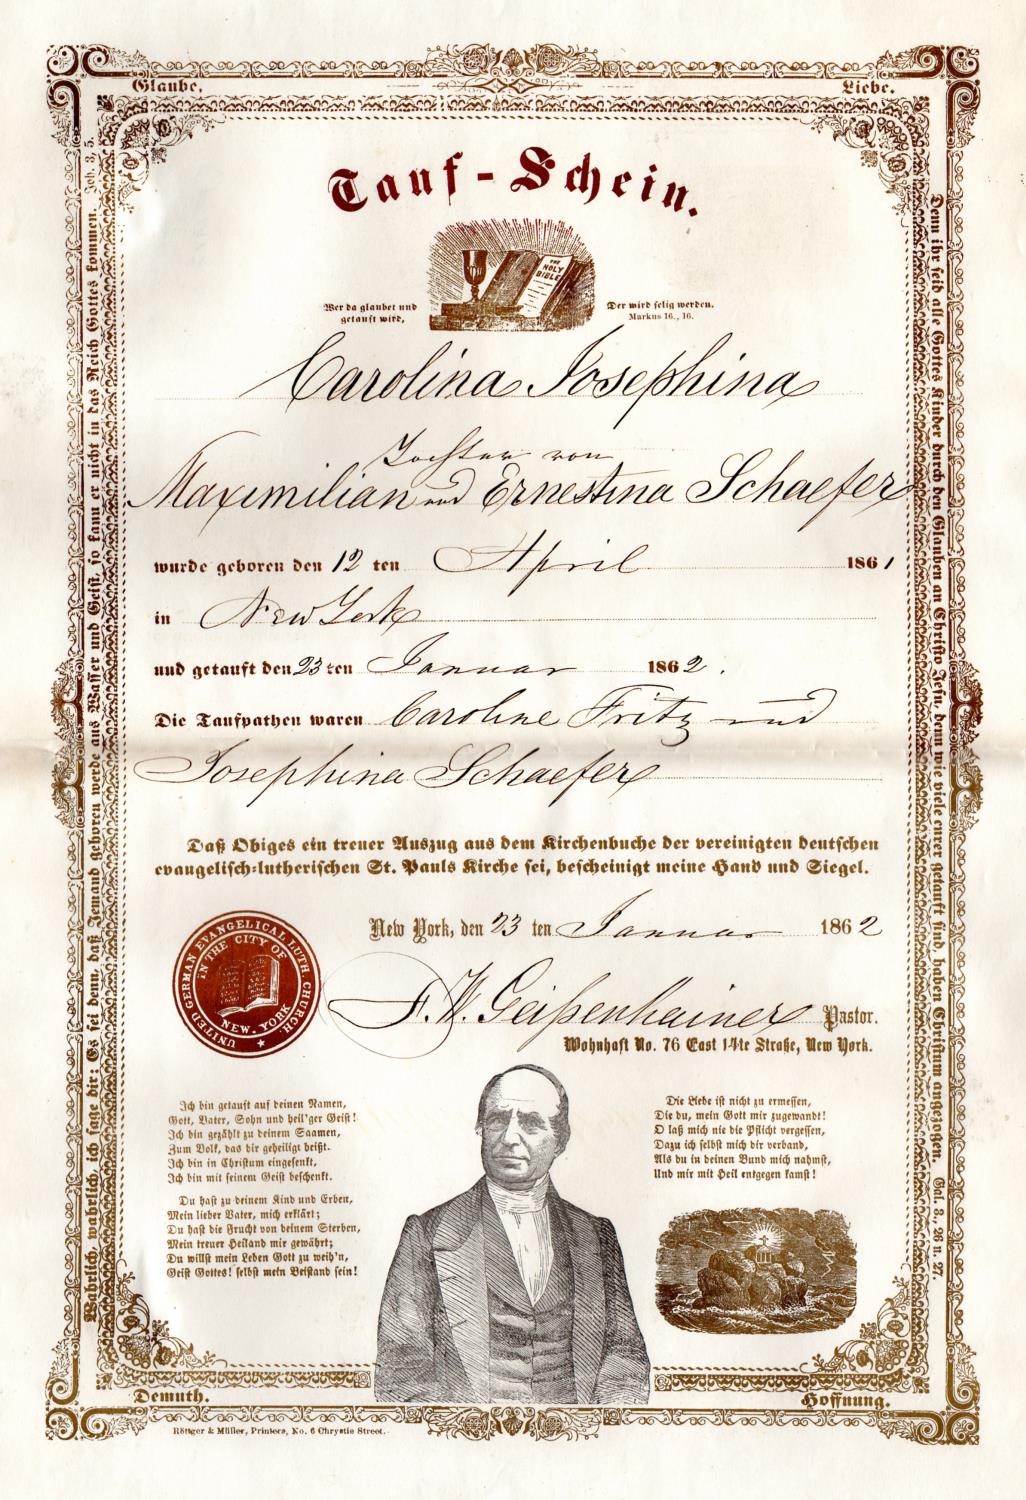 Glaube.
Liebe.
Tauf-Schein.
THE
HOLY
BIBLE
Wer da glaubet und
getauft wird,
Der wird selig werden.
Markus 16., 16.
Carolina Josephina
Tochter von
Maximilian und Ernestina Schaefer
wurde geboren den 12 ten April 1861
in New York
und getauft den 23 ten Januar 1862.
Die Taufpathen waren Caroline Fritz und
Josephina Schaefer
Daß Obiges ein treuer Auszug aus dem Kirchenbuche der vereinigten deutschen
evangelisch-lutherischen St. Pauls Kirche sei, bescheinigt meine Hand und Siegel.
New York, den 23 ten Januar 1862
UNITED GERMAN EVANGELICAL LUTH. CHURCH.
IN THE CITY OF
NEW-YORK
F. W. Geißenhainer Pastor.
Wohnhaft No. 76 East 14te Straße, New York.
Ich bin getauft auf deinen Namen,
Gott, Vater, Sohn und heil'ger Geist!
Ich bin gezählt zu deinem Saamen,
Zum Volk, das dir geheiligt heißt.
Ich bin in Christum eingesenkt,
Ich bin mit seinem Geist beschenkt.
Du hast zu deinem Kind und Erben,
Mein lieber Vater, mich erklärt;
Du hast die Frucht von deinem Sterben,
Mein treuer Heiland mir gewährt;
Du willst mein Leben Gott zu weih'n,
Geist Gottes! selbst mein Beistand sein!
Die Liebe ist nicht zu ermessen,
Die du, mein Gott mir zugewandt!
O laß mich nie die Pflicht vergessen,
Dazu ich selbst mich dir verband,
Als du in deinen Bund mich nahmst,
Und mir mit Heil entgegen kamst!
Wahrlich, wahrlich, ich sage dir: Es sei denn, daß Jemand geboren werde aus Wasser und Geist, so kann er nicht in das Reich Gottes kommen. Joh. 3, 5.
Denn ihr seid alle Gottes Kinder durch den Glauben an Christo Jesu, denn wie viele eurer getauft sind, haben Christum angezogen. Gal. 3., 26 u. 27.
Demuth.
Hoffnung.
Röttger & Müller, Printers, No. 6 Chrystie Street.